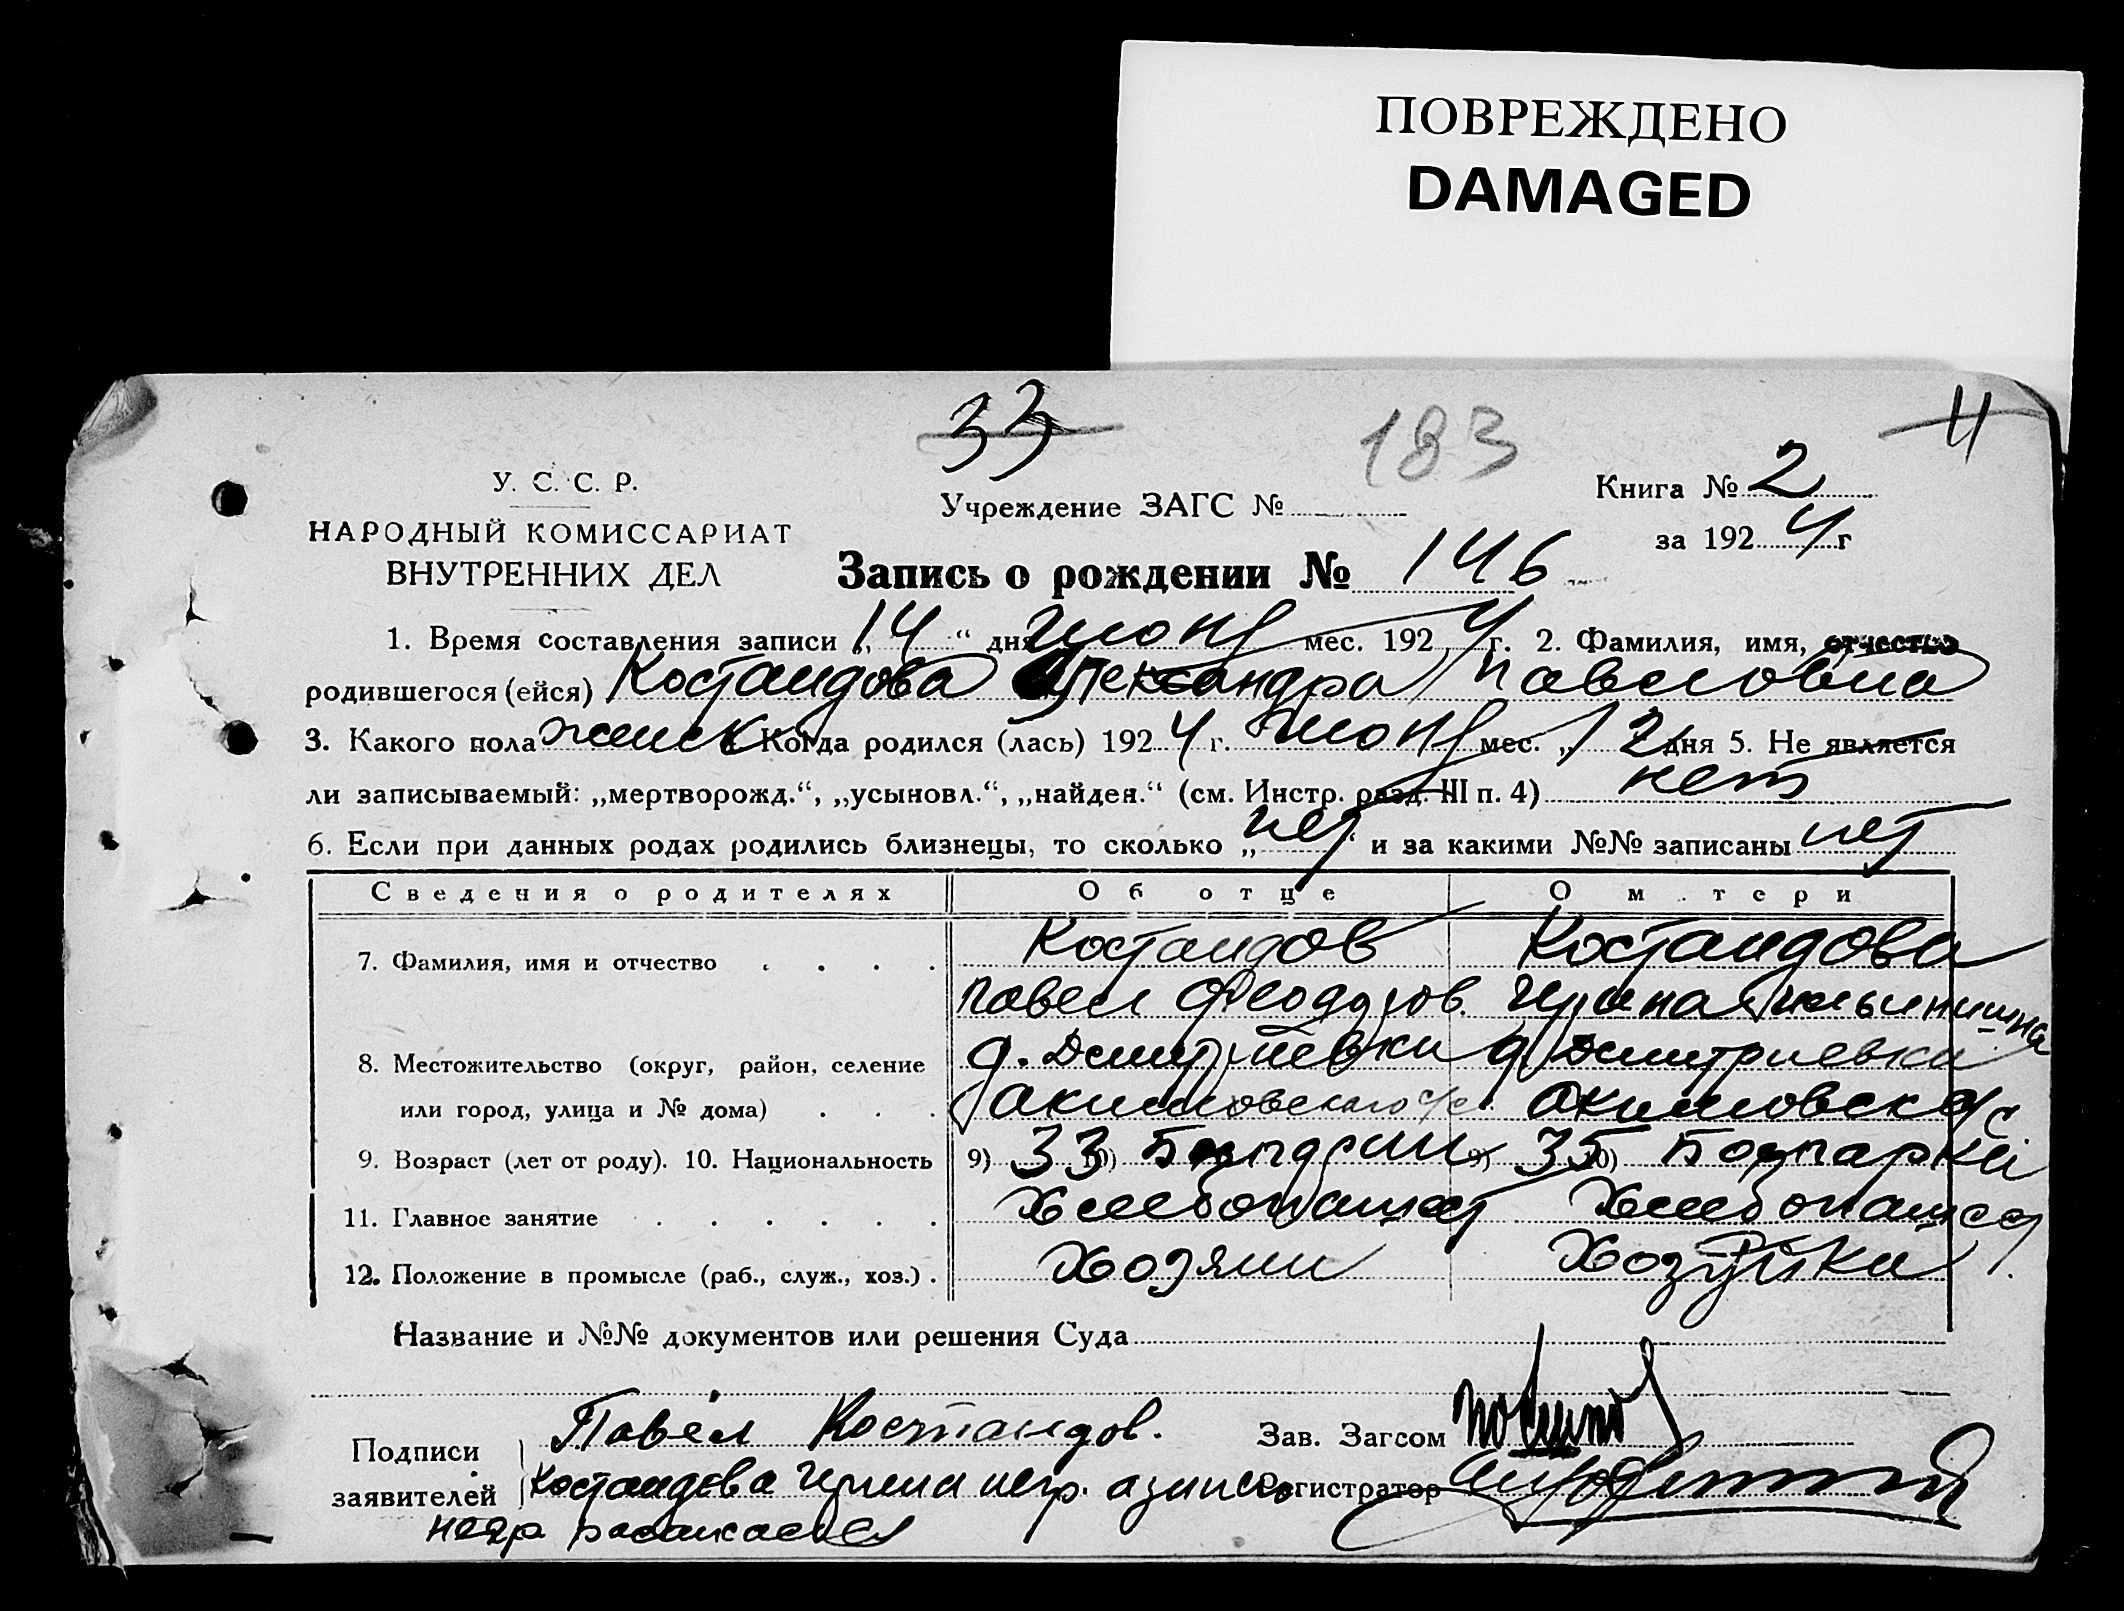 ПОВРЕЖДЕНО
DAMAGED
33
183
11
У. С. С. Р.
НАРОДНЫЙ КОМИССАРИАТ
ВНУТРЕННИХ ДЕЛ
Учреждение ЗАГС №
Книга № 2
за 1924 г
Запись о рождении № 146
1. Время составления записи „14“ дня Июня мес. 1924 г. 2. Фамилия, имя, отчество
родившегося (ейся) Костандова Александра Павловна
3. Какого пола женск Когда родился (лась) 1924 г. Июня мес. „12 дня 5. Не является
ли записываемый: „мертворожд.“, „усыновл.“, „найден.“ (см. Инстр. разд. III п. 4) нет
6. Если при данных родах родились близнецы, то сколько „нет“ и за какими №№ записаны нет
Сведения о родителях Об отце О м тери
7. Фамилия, имя и отчество Костандов Костандова
Павел Феодоров. Ирина Ильинишна
8. Местожительство (округ, район, селение д. Дмитриевки д. Дмитриевки
или город, улица и № дома) Акимовскаго с/с. Акимовск с/с
9. Возраст (лет от роду). 10. Национальность 9) 33 10) 9) 35 10) Болгарка
11. Главное занятие Хлебопашест Хлебопашест
12. Положение в промысле (раб., служ., хоз.) . Хозяин Хозуйка
Название и №№ документов или решения Суда
Подписи заявителей Павел Костандов.
Костандова Ирина негр. а за
Зав. Загсом
Регистратор